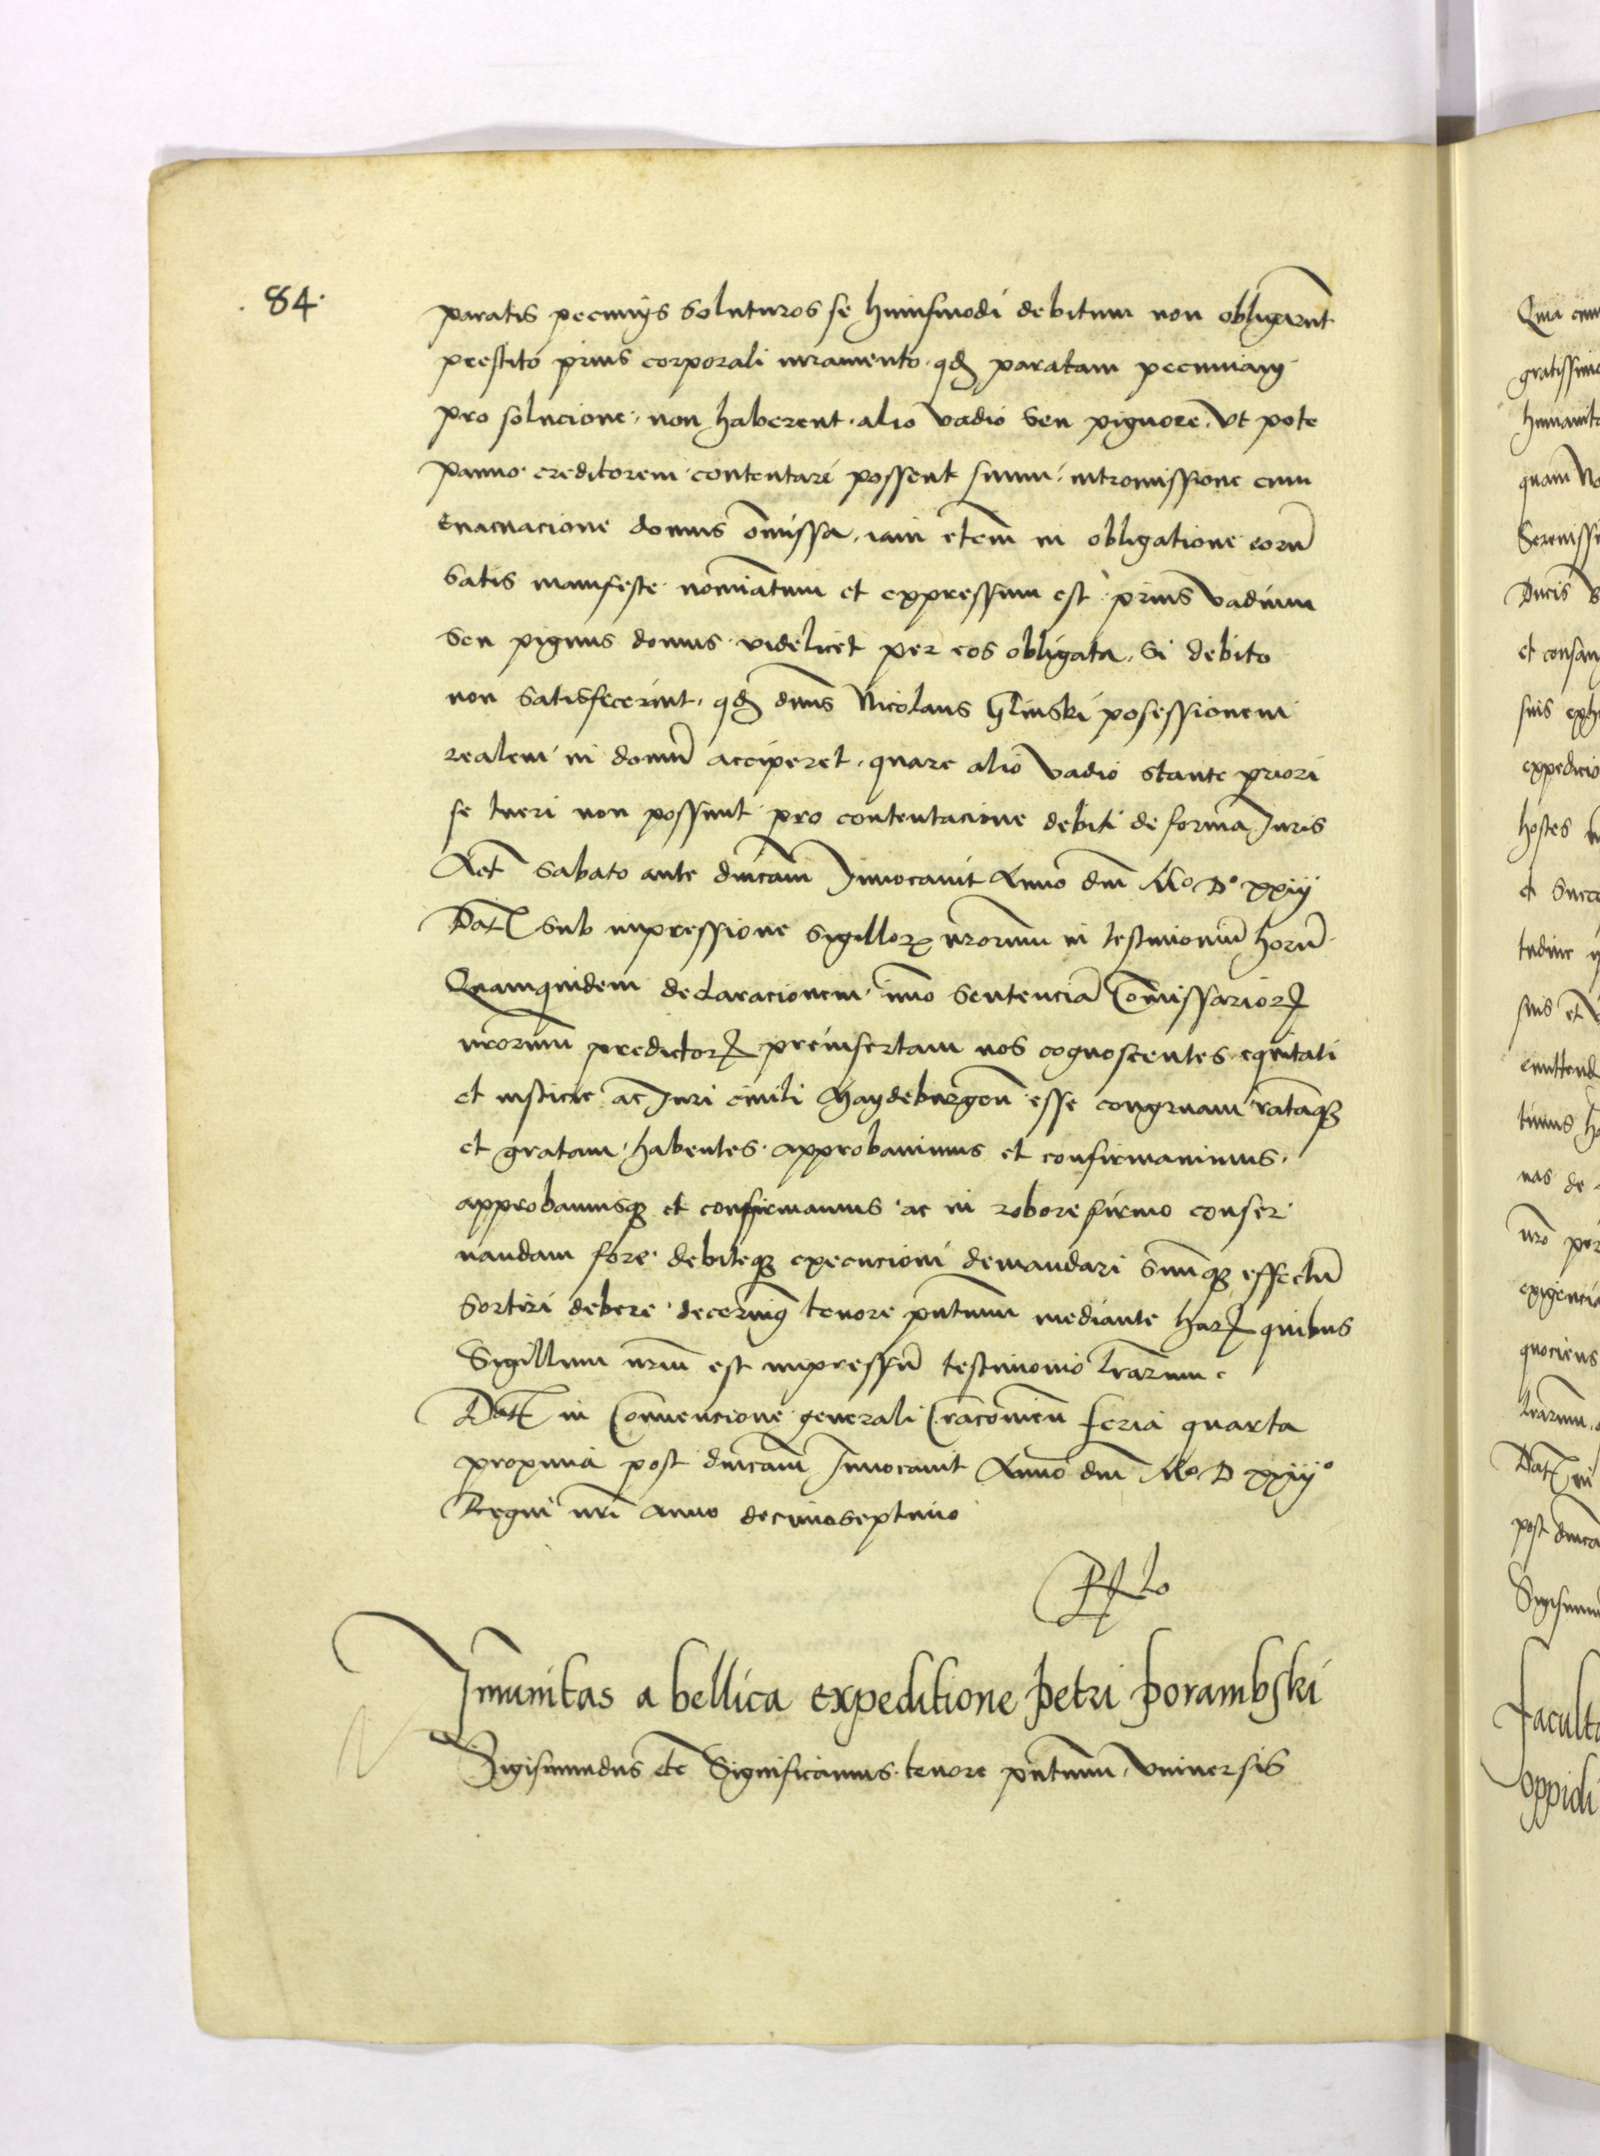 84.
paratis pecunijs soluturos se huiusmodi debitum non obligarūt
prestito prius corporali iuramento. qd paratam pecuniam
pro solucione. non haberent. alio vadio Seu pignore. Vt pote
panno creditorem contentari possent sinuī. intromissione cum
Euacuacione domus omissa. iam etem in obligatione eorū
Satis manifeste nominatum et expressum est prius Vadium
Seu pignus domus videlicet per eos obligata. Si debito
non Satisfecerint. qd dnus Nicolaus Glinski posessionem
realem in domū acciperet. quare alio Vadio stante priori
se tueri non possunt pro contentacione debiti de forma Juris
Act Sabato ante dnicam Inuocauit Anno dni Mo Do xxiij
Dat Sub impressione Sigillorum nrorum in testimoniū horū
Quamquidem declaracionem imo Sentenciā Comissariorum
nrorum predictorum preinsertam nos cognoscentes equitati
et iusticie ac Juri ciuili Maydeburgen esse congruam ratamque
et gratam habentes approbauimus et confirmauimus.
approbamusque et confirmamus ac in robore firmo conser
uandam fore debiteque execucioni demandari Suumque effectū
Sortiri debere decernimus tenore pntium mediante harum quibus
Sigillum nrum est impressū testimonio lrarum.
Dat in Conuencione generali Cracouien feria quarta
proxima post dnicam Inuocauit Anno dni Mo D xxiijo
Regni nri anno decimoseptimo
Imunitas a bellica expeditione Petri Porambski
Sigismundus etc Significamus tenore pntium. Vniuersis